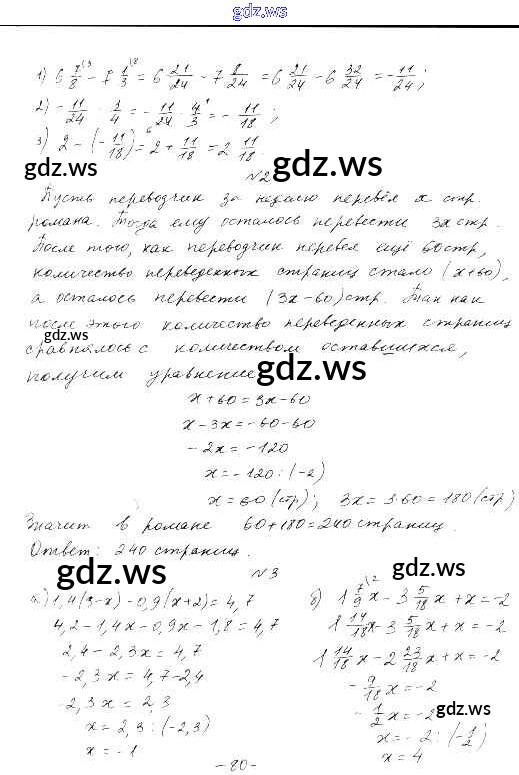 gdz.ws
1) 6 7/8 \3 - 7 1/3 \8 = 6 21/24 - 7 8/24 = 6 21/24 - 6 32/24 = - 11/24 ;
2) - 11/24 : 3/4 = - 11/24 · 4/3 = - 11/18 ;
3) 2 - (- 11/18) = 2 + 11/18 = 2 11/18
gdz.ws №2 gdz.ws
Пусть переводчик за неделю перевёл x стр.
романа. Тогда ему осталось перевести 3x стр.
После того, как переводчик перевел ещё 60 стр,
количество переведенных страниц стало (x+60),
а осталось перевести (3x-60) стр. Так как
после этого количество переведенных страниц
сравнялось с количеством оставшихся,
gdz.ws
получим уравнение gdz.ws
x+60=3x-60
x-3x=-60-60
-2x=-120
x=-120:(-2)
x=60 (стр); 3x=3·60=180 (стр)
Значит в романе 60+180=240 страниц.
Ответ: 240 страниц.
gdz.ws №3 gdz.ws
а) 1,4(3-x)-0,9(x+2)=4,7
4,2-1,4x-0,9x-1,8=4,7
2,4-2,3x=4,7
-2,3x=4,7-2,4
-2,3x=2,3
x=2,3:(-2,3)
x=-1
б) 1 7/9 \2 x - 3 5/18 x + x = -2
1 14/18 x - 3 5/18 x + x = -2
1 14/18 x - 2 23/18 x + x = -2
- 9/18 x = -2
- 1/2 x = -2
gdz.ws
x = -2 : (- 1/2)
x = 4
-80-
gdz.ws